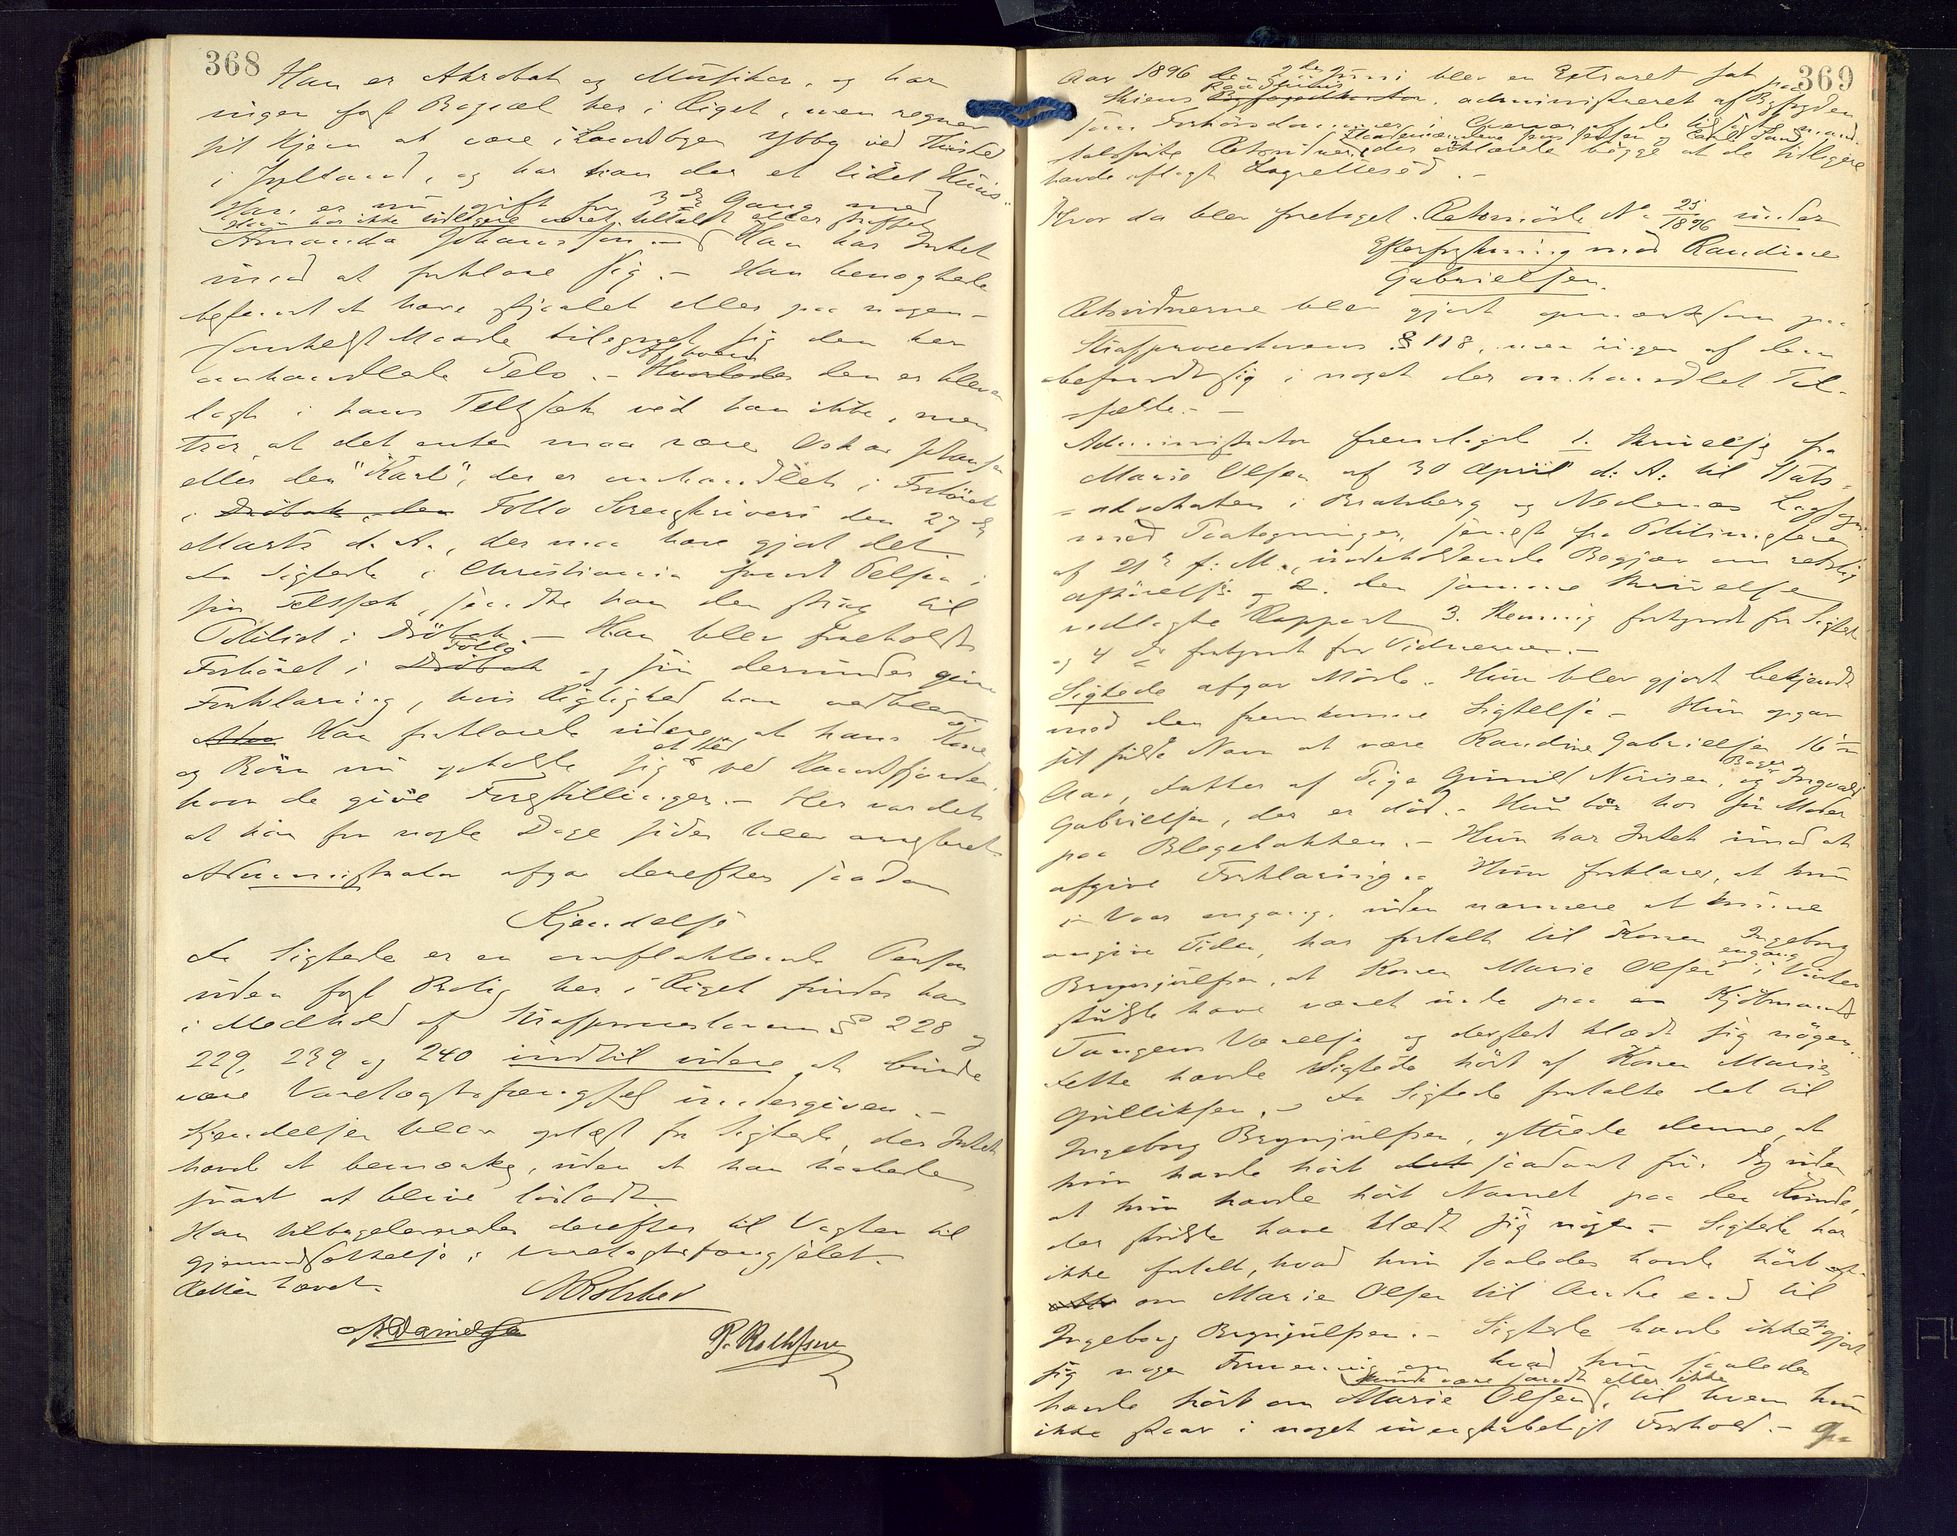 368
Han er Akrobat og Musiker, og har
ingen fast Bopæl her i Riget, men regner
sit Hjem at være i Landsbyen Ybby ved Thisted
i Jylland, og har han der et lidet Huus.
Han er nu gift for 3die Gang med
Han har ikke tidligere været tiltalt eller straffet
Amanda Johansen. Han har Intet
imod at forklare sig. – Han benegtede
bestemt at have stjaalet eller paa nogen-
somhelst Maade tilegnet sig den her
omhandlede Pels. – Af hvem den er bleven
lagt i hans Teltsæk ved han ikke, men
tror, at det enten maa være Oskar
eller den "Karl", der er omhandlet i Forhøret
i Drøbak, den Follo Sorenskriveri den 27de
Marts d. A., der maa have gjort det.
Da Sigtede i Christiania fandt Pelsen i
sin Teltsæk, sendte han den strax til
Politiet i Drøbak. – Han blev foreholdt
Forhøret i Drøbak Follo og sin derunder givne
Forklaring, hvis Rigtighed han vedblev.
Han forklarede videre, at hans Kone
og Børn nu opholde sig et Sted ved
hvor de give Forestillinger. – Her var det
at han for nogle Dage siden blev anholdt.
Administrator afgav derefter saadan
Kjendelse
Da Sigtede er en omflakkende Person
uden fast Bolig her i Riget findes han
i Medhold af Straffeproceslovens § 228 og
229, 239 og 240 indtil videre at burde
være Varetægtsfængsel undergiven. –
Kjendelsen blev oplæst for Sigtede, der Intet
havde at bemærke, uden at han haabede
snart at blive løsladt.
Han tilbageleveredes derefter til Vagten til
gjenindsættelse i Varetægtsfængselet.
Retten hævet.
A Danielsen
P. Rolfsen
369
Aar 1896 den 2den Juni blev en Extraret sat paa
Skiens Raadhuus Byfogedkontor, administreret af Byfogden
som Forhørsdommer i Overvær af de
Retsvidner, der erklærede begge at de tidligere
havde aflagt Lagrettesed. –
Hvor da blev foretaget Retsmøde No 25/1896 under
Efterforskning mod Randine
Gabrielsen.
Retsvidnerne blev gjort opmærksom paa
Straffeproceslovens § 118, men ingen af dem
befandt sig i noget der omhandlet Til-
fælde. –
Administrator fremlagde 1. Skrivelse fra
Marie Olsen af 30 April d. A. til Stats-
advokaten i Bratsberg og Nedenæs Lagsogn
med Paategninger, senest fra Politimesteren
af 21de f. M., indeholdende Begjær om retslig
afhørelse og 2. den samme Skrivelse
vedlagte Rapport 3. Stevning forkyndt for Sigtede
og 4 do forkyndt for Vidnerne. –
Sigtede afgav Møde. Hun blev gjort bekjendt
med den fremkomne Sigtelse. – Hun opgav
sit fulde Navn at være Randine Gabrielsen 16
Aar, Datter af Pige Gunild Nirisen, og Bager Ingvald
Gabrielsen, der er død. – Hun bor hos sin Moder
paa Blegebakken. – Hun har Intet imod at
afgive Forklaring. Hun forklarer, at hun
i Vaar engang, uden nærmere at kunne
angive Tiden, har fortalt til Konen Ingeborg
Brynjulfsen, at Konen Marie Olsen engang i Vinter
skulde have været inde paa en Kjøbmand
Tangens Værelse og dersteds klædt sig nøgen.
Dette havde Sigtede hørt af Konen Marie
Gulliksen. – Da Sigtede fortalte det til
Ingeborg Brynjulfsen, yttrede denne, at
hun havde hørt det saadant før. Eg uden
at hun havde hørt Navnet paa den Kvinde,
der skulde have klædt sig nøgen. – Sigtede har
ikke fortalt, hvad hun saaledes havde hørt
om Marie Olsen til Andre end til
Ingeborg Brynjulfsen. – Sigtede havde ikke gjort
sig nogen Formening om hvad hun saaledes
kunde være sandt eller ikke
havde hørt om Marie Olsen, til hvem hun
ikke staar i noget uvenskabeligt Forhold. –